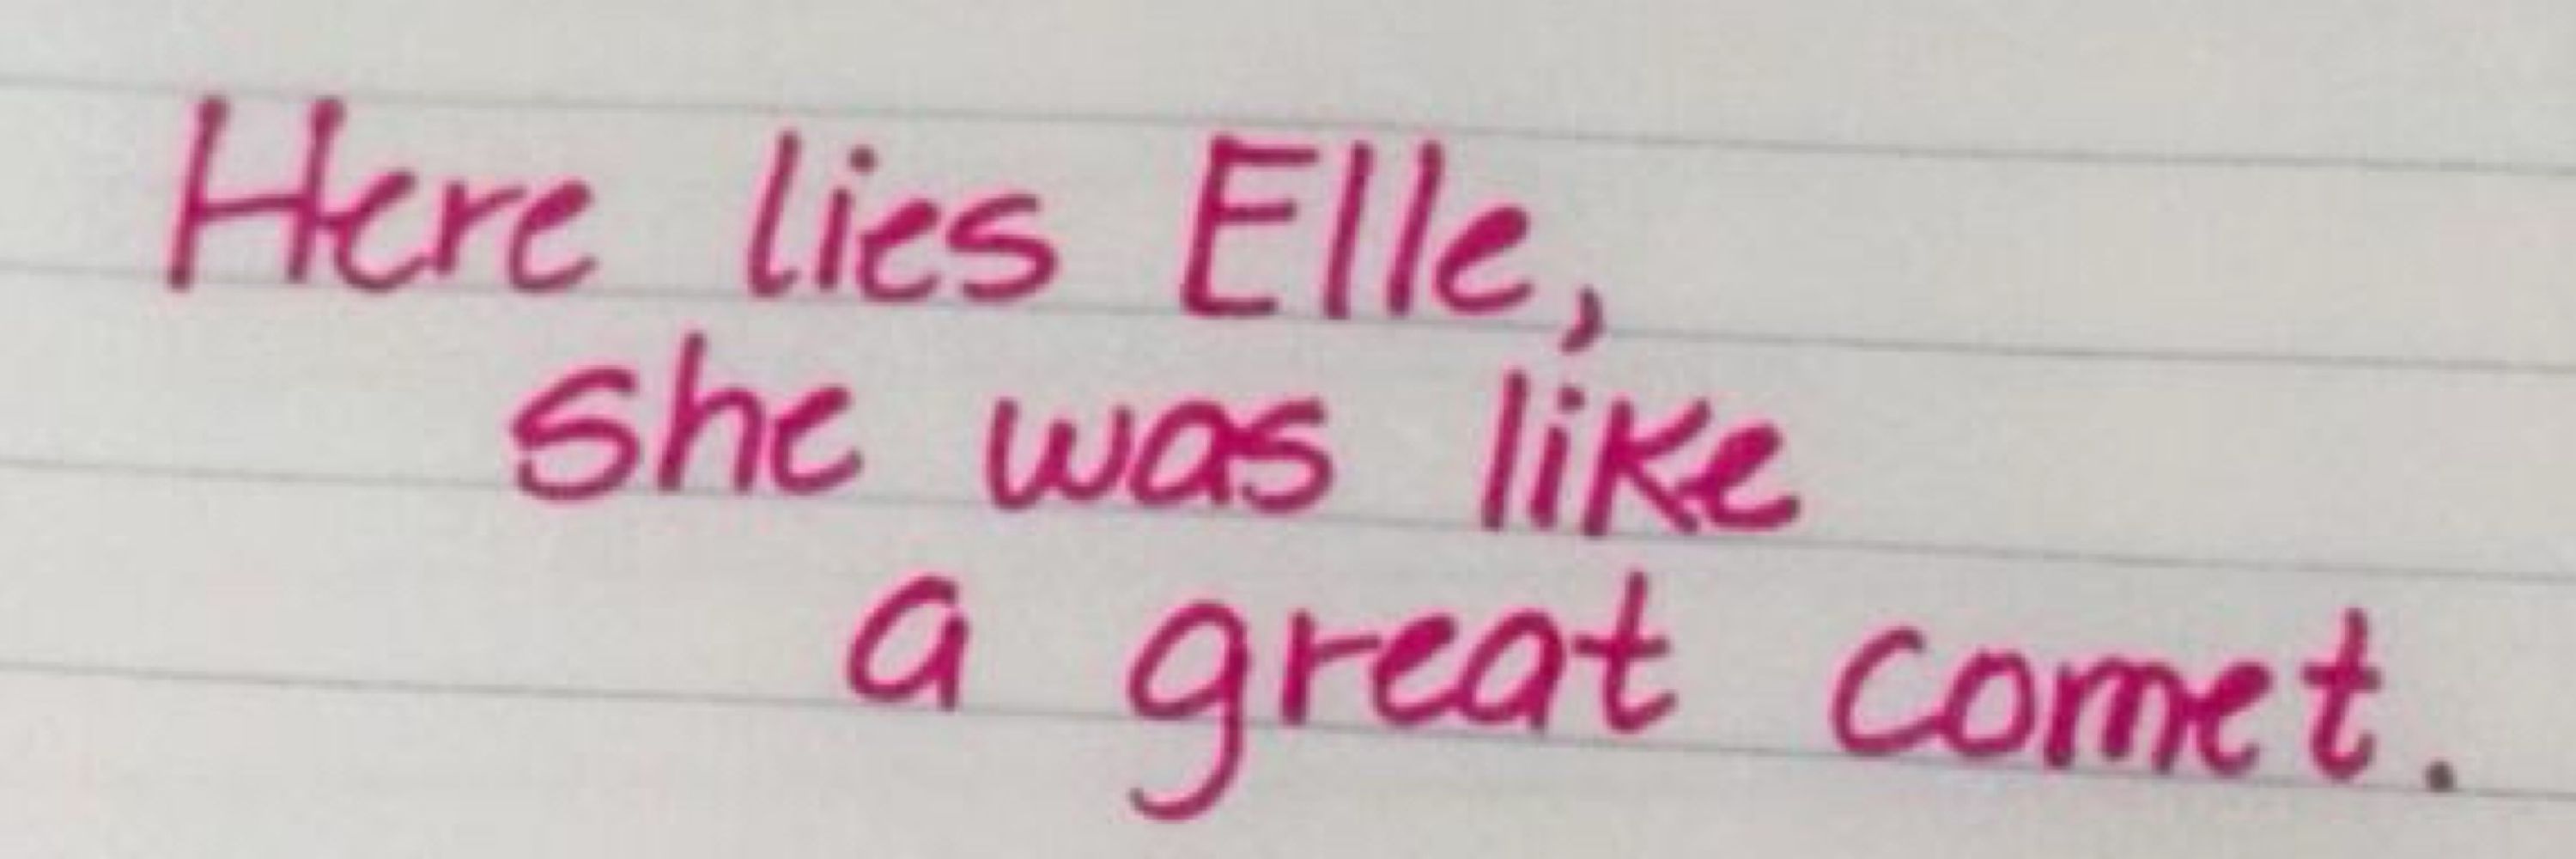 Here lies Elle,
she was like
a great comet.